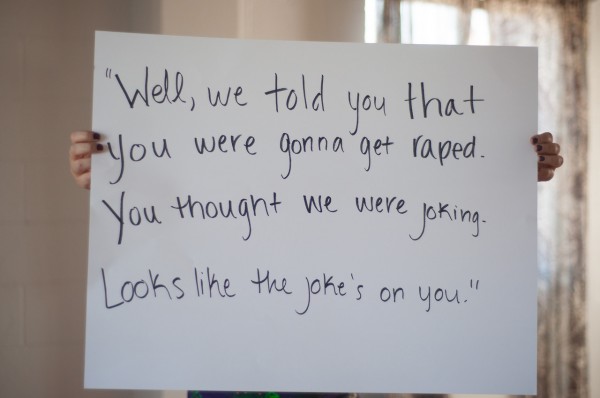 "Well, we told you that
you were gonna get raped.
You thought we were joking.
Looks like the joke's on you."